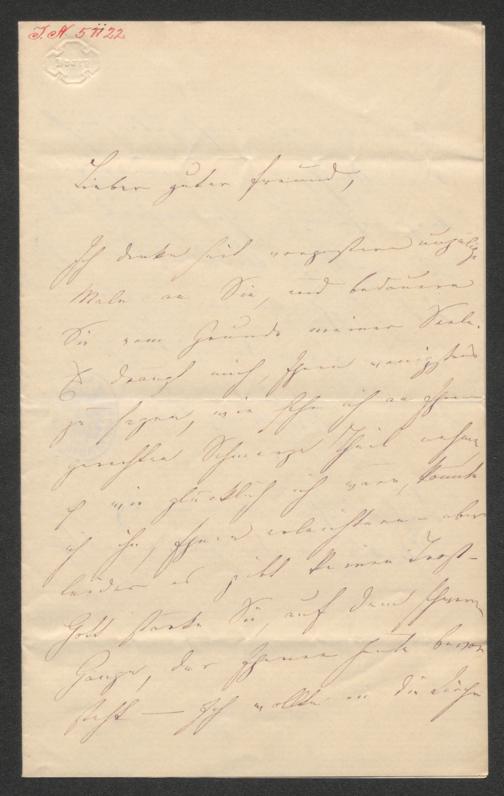 I. N. 5 1122
Lieber guter Freund,
Ich denke seit vorgestern unzälige
Male an Sie, und bedauere
Sie vom Grunde meiner Seele.
Es drängt mich, Ihnen wenigstens
zu sagen, wie sehr ich an Ihrem
gerechten Schmerze Theil nehme,
o wie glücklich ich wäre, könnte
ich ihn, Ihnen erleichtern – aber
leider es gibt keinen Trost –
Gott stärke Sie, auf dem schweren
Gange, der Ihnen heute bevor
steht — Ich wollte in die Kirche